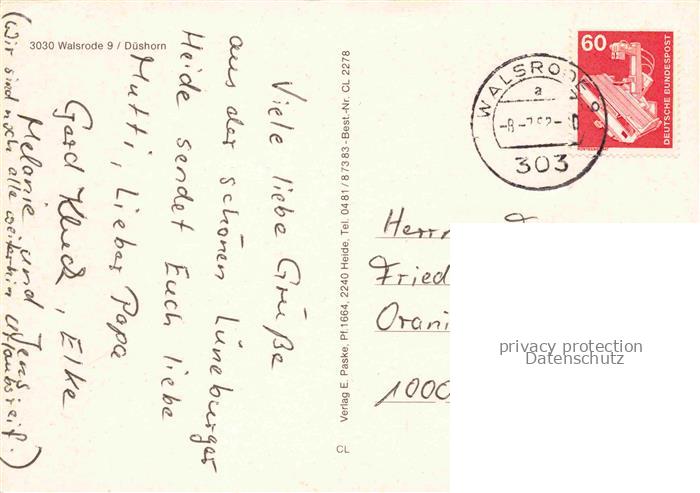 3030 Walsrode 9 / Düshorn
Viele liebe Grüße
aus der schönen Lüneburger
Heide sendet Euch liebe
Mutti, Lieber Papa
Gerd, Elke
Melanie und Jens
(Wir sind noch alle weiterhin urlaubsreif.)
Verlag E. Paske, Pf. 1664, 2240 Heide, Tel. 0481/87383 - Best.-Nr. CL 2278
CL
WALSRODE
a
303
60
DEUTSCHE BUNDESPOST
Herrn
Fried
Orani
1000
privacy protection
Datenschutz